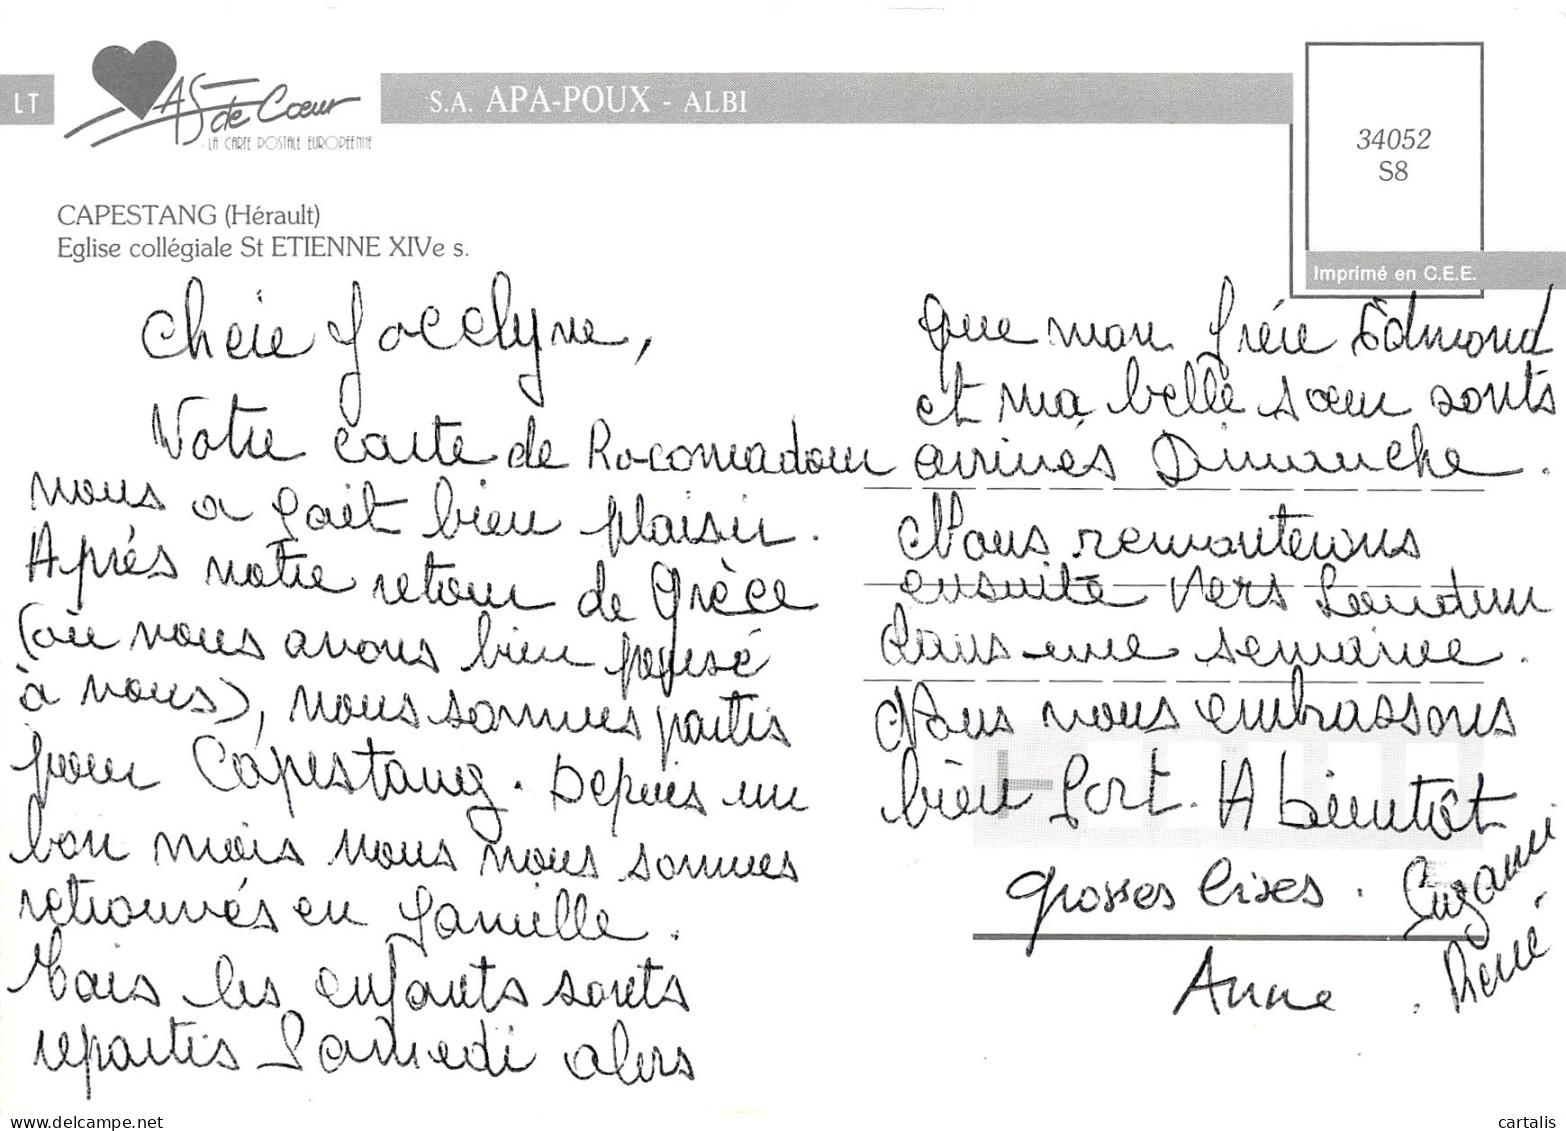 LT
AS de Cœur
LA CARTE POSTALE EUROPÉENNE
S.A. APA-POUX - ALBI
34052
S8
Imprimé en C.E.E.
CAPESTANG (Hérault)
Eglise collégiale St ETIENNE XIVe s.
Chère Jocelyne,
Votre carte de Rocomadour
nous a fait bien plaisir.
Après notre retour de Grèce
(où nous avons bien pensé
à vous), nous sommes partis
pour Capestang. Depuis un
bon mois nous nous sommes
retrouvés en famille.
Mais les enfants sonts
repartis Samedi alors
que mon frère Edmond
et ma belle sœur sonts
arrivés Dimanche.
Nous remonterons
ensuite vers Loudun
dans une semaine.
Nous vous embrassons
bien fort. A bientôt
grosses bises. Suzanne
René
Anne
cartalis
delcampe.net